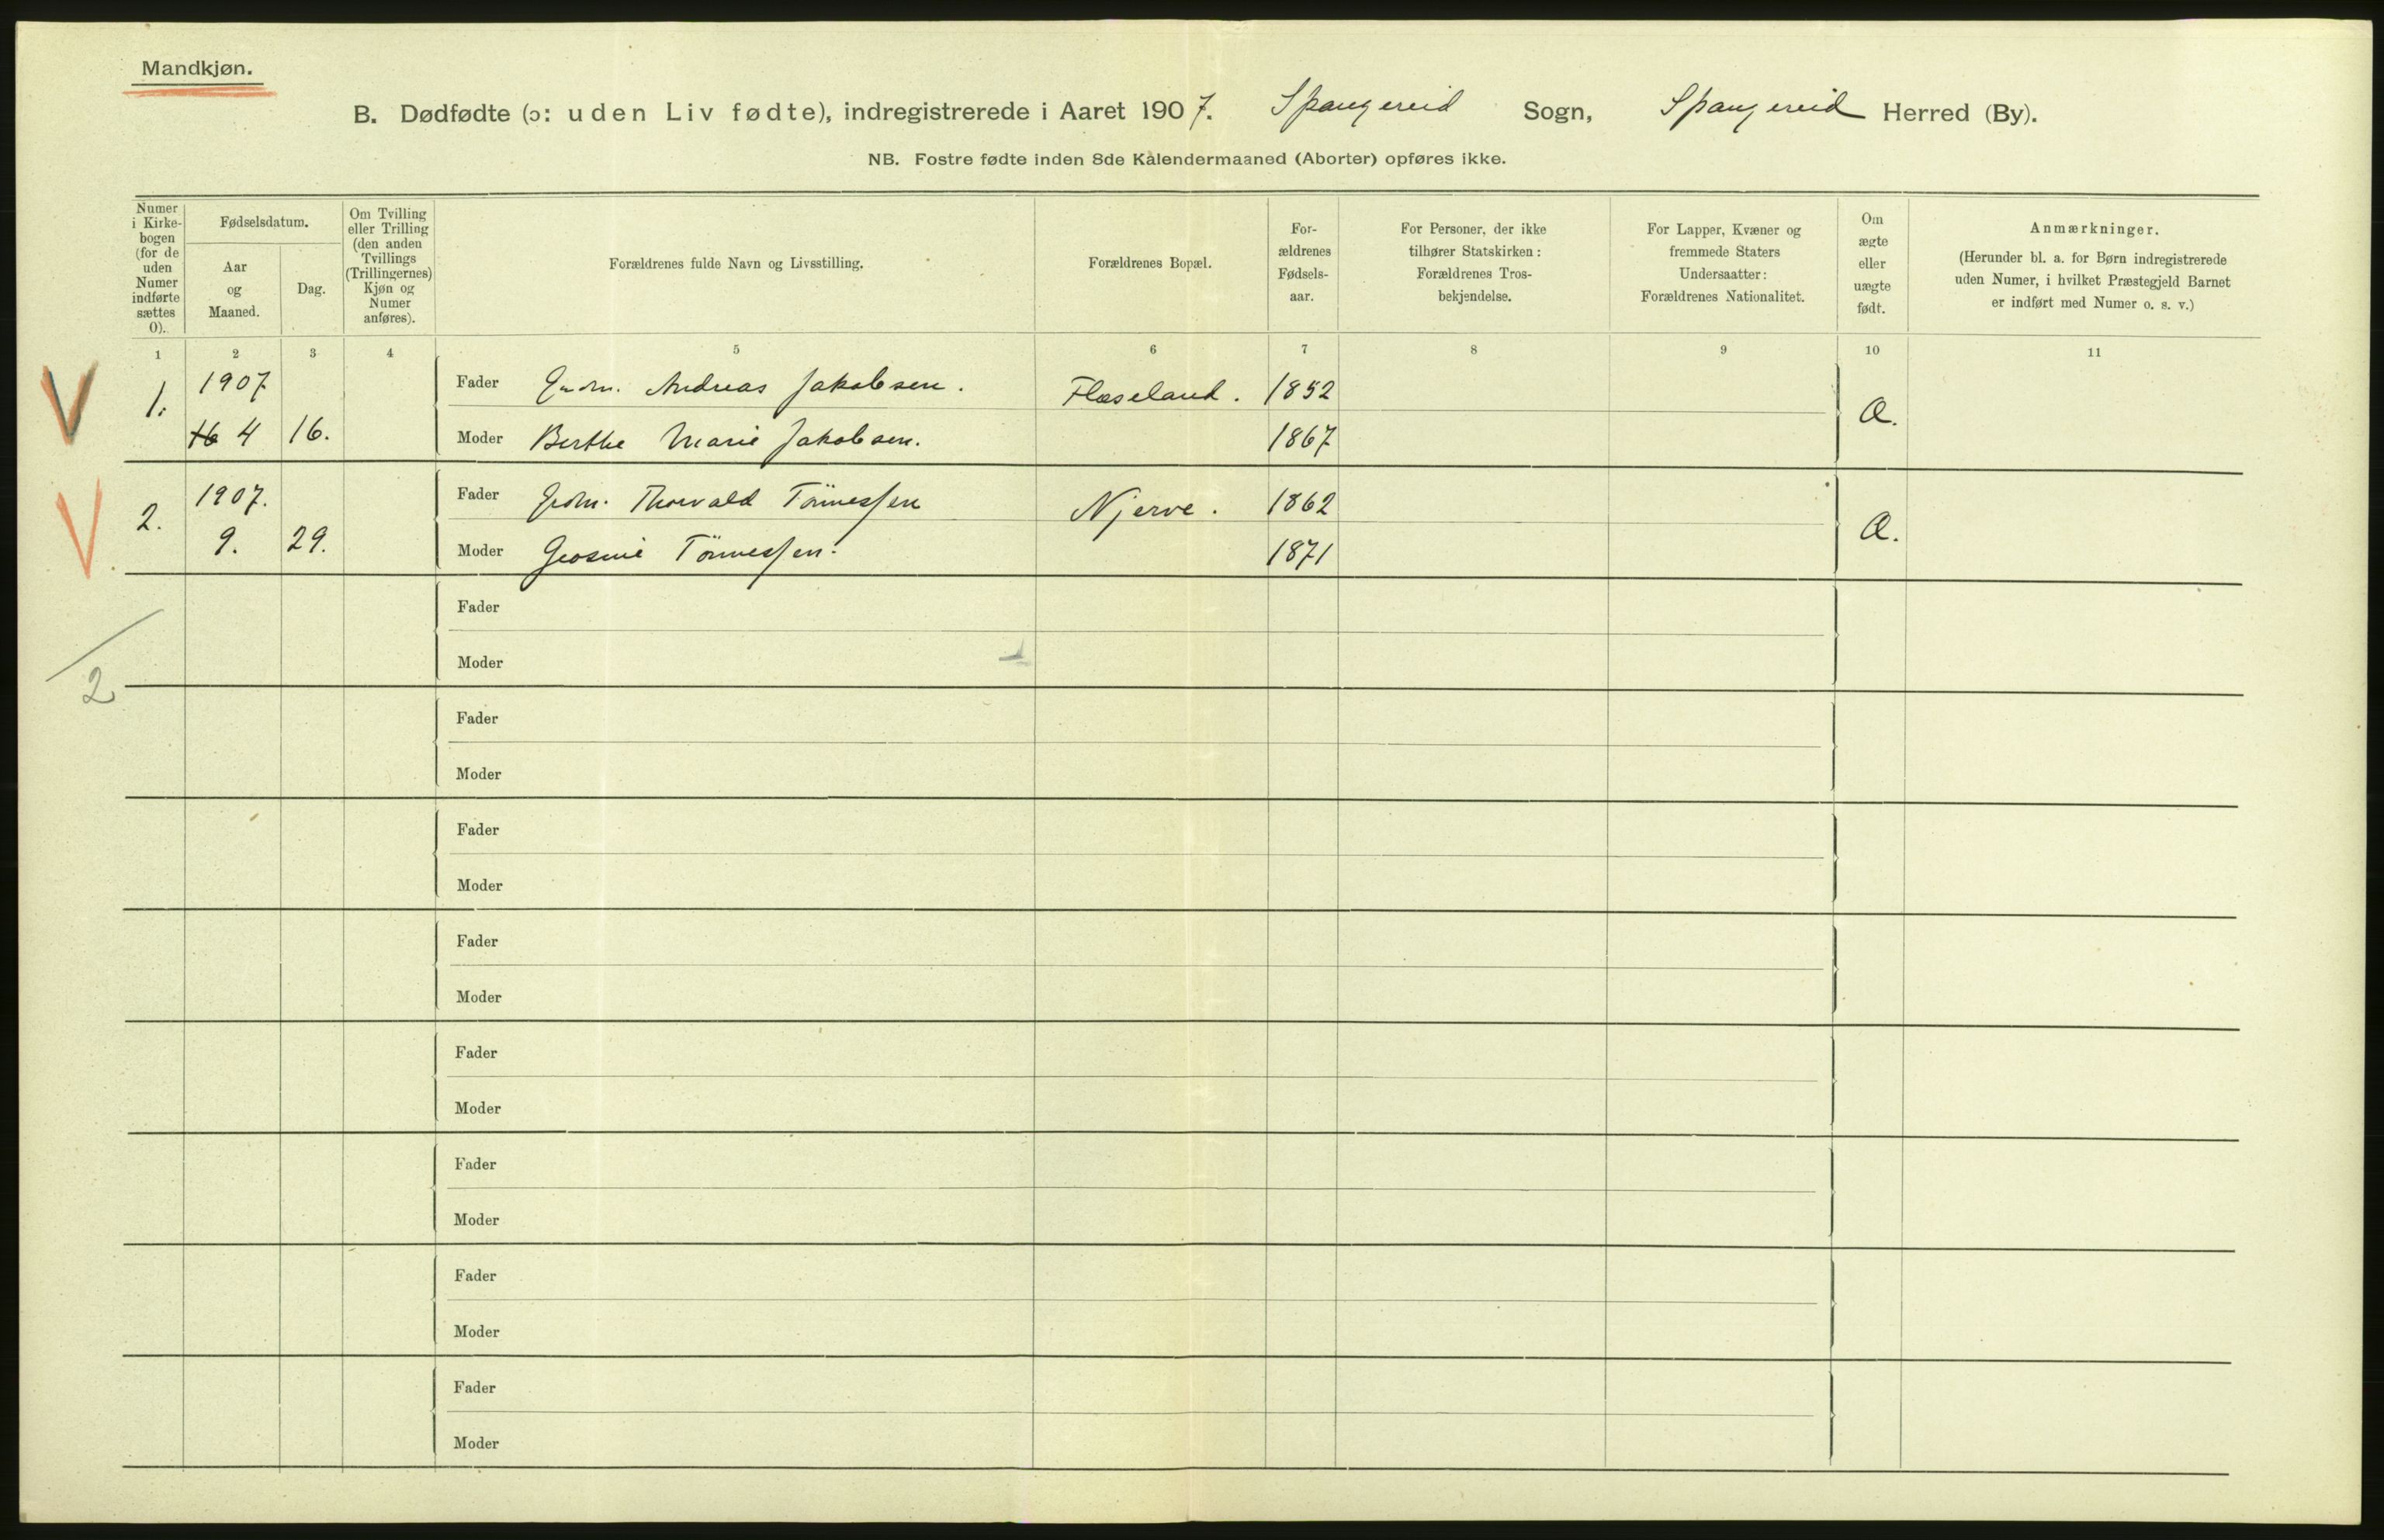 Mandkjøn.
B. Dødfødte (ɔ: uden Liv fødte), indregistrerede i Aaret 1907. Spangereid Sogn, Spangereid Herred (By).
NB. Fostre fødte inden 8de Kalendermaaned (Aborter) opføres ikke.
Numer i Kirkebogen (for de uden Numer indførte sættes 0).
Fødselsdatum.
Aar og Maaned.
Dag.
Om Tvilling eller Trilling (den anden Tvillings (Trillingernes) Kjøn og Numer anføres).
Forældrenes fulde Navn og Livsstilling.
Forældrenes Bopæl.
For-ældrenes Fødsels-aar.
For Personer, der ikke tilhører Statskirken: Forældrenes Tros-bekjendelse.
For Lapper, Kvæner og fremmede Staters Undersaatter: Forældrenes Nationalitet.
Om ægte eller uægte født.
Anmærkninger.
(Herunder bl. a. for Børn indregistrerede uden Numer, i hvilket Præstegjeld Barnet er indført med Numer o. s. v.)
1 2 3 4 5 6 7 8 9 10 11
V 1. 1907 Fader Gdm. Andreas Jakobsen. Flaseland. 1852 Æ.
16 4 16. Moder Berthe Marie Jakobsen. 1867
V 2. 1907. Fader Gdm. Thorvald Tönnessen Njerve. 1862 Æ.
9. 29. Moder Geosine Tönnessen. 1871
Fader
Moder
2
Fader
Moder
Fader
Moder
Fader
Moder
Fader
Moder
Fader
Moder
Fader
Moder
Fader
Moder